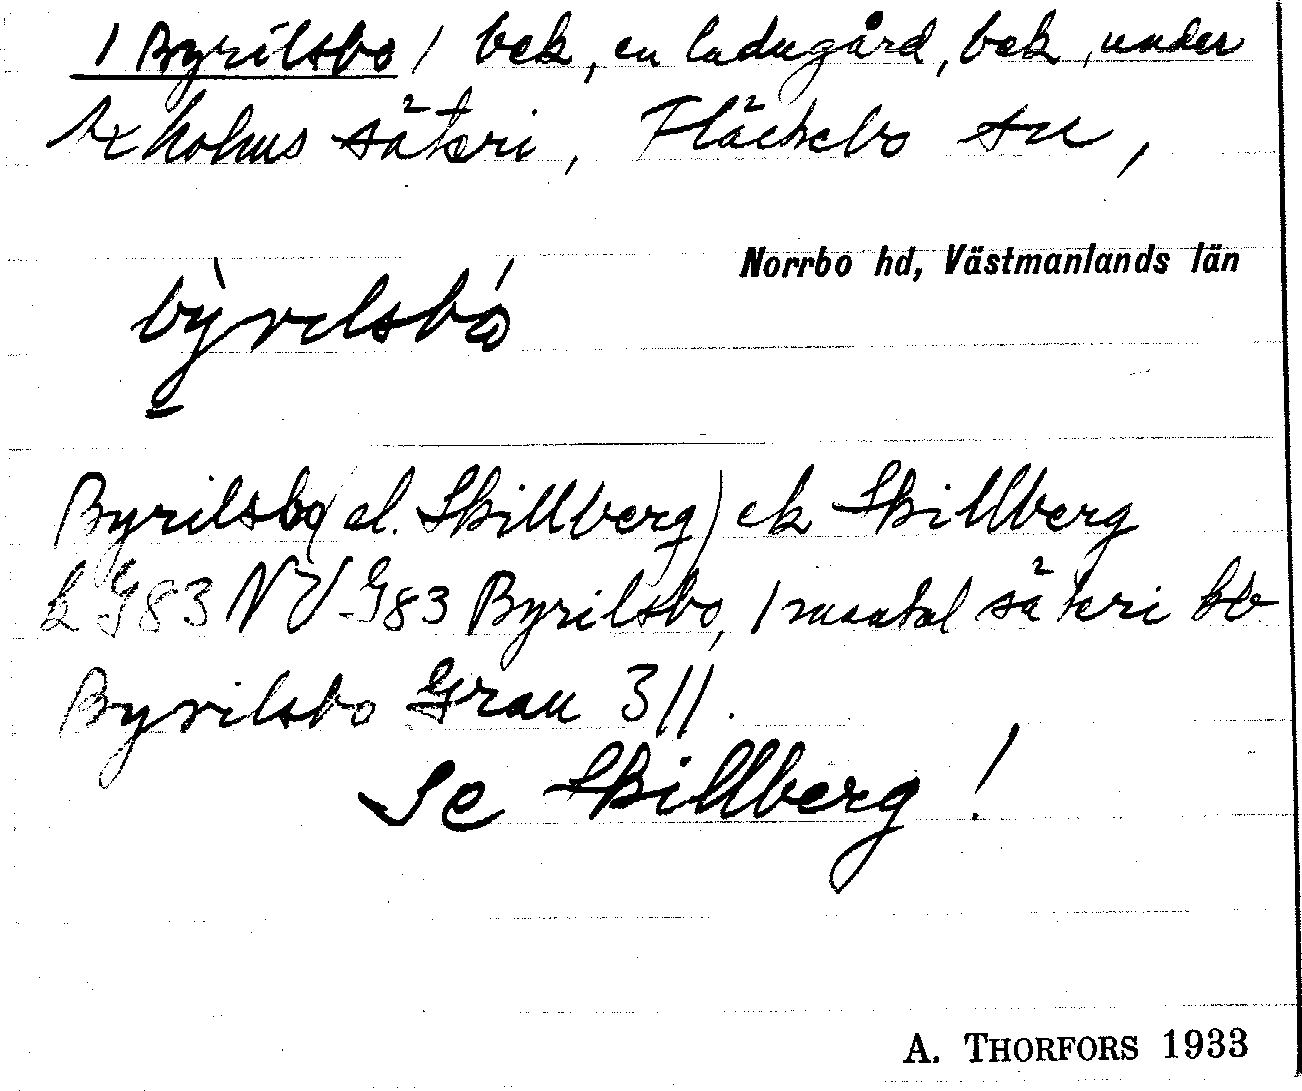 / Byrilsbo / bek, en ladugård, bek, under
Axholms säteri, Fläckebo sn,
Norrbo hd, Västmanlands län
bỳrilsbó
Byrilsbo (el. Skillberg) ek Skillberg
G83 NV G83 Byrilsbo, 1 mantal säteri
Byrilsbo Grau 311.
Se Skillberg!
A. THORFORS 1933